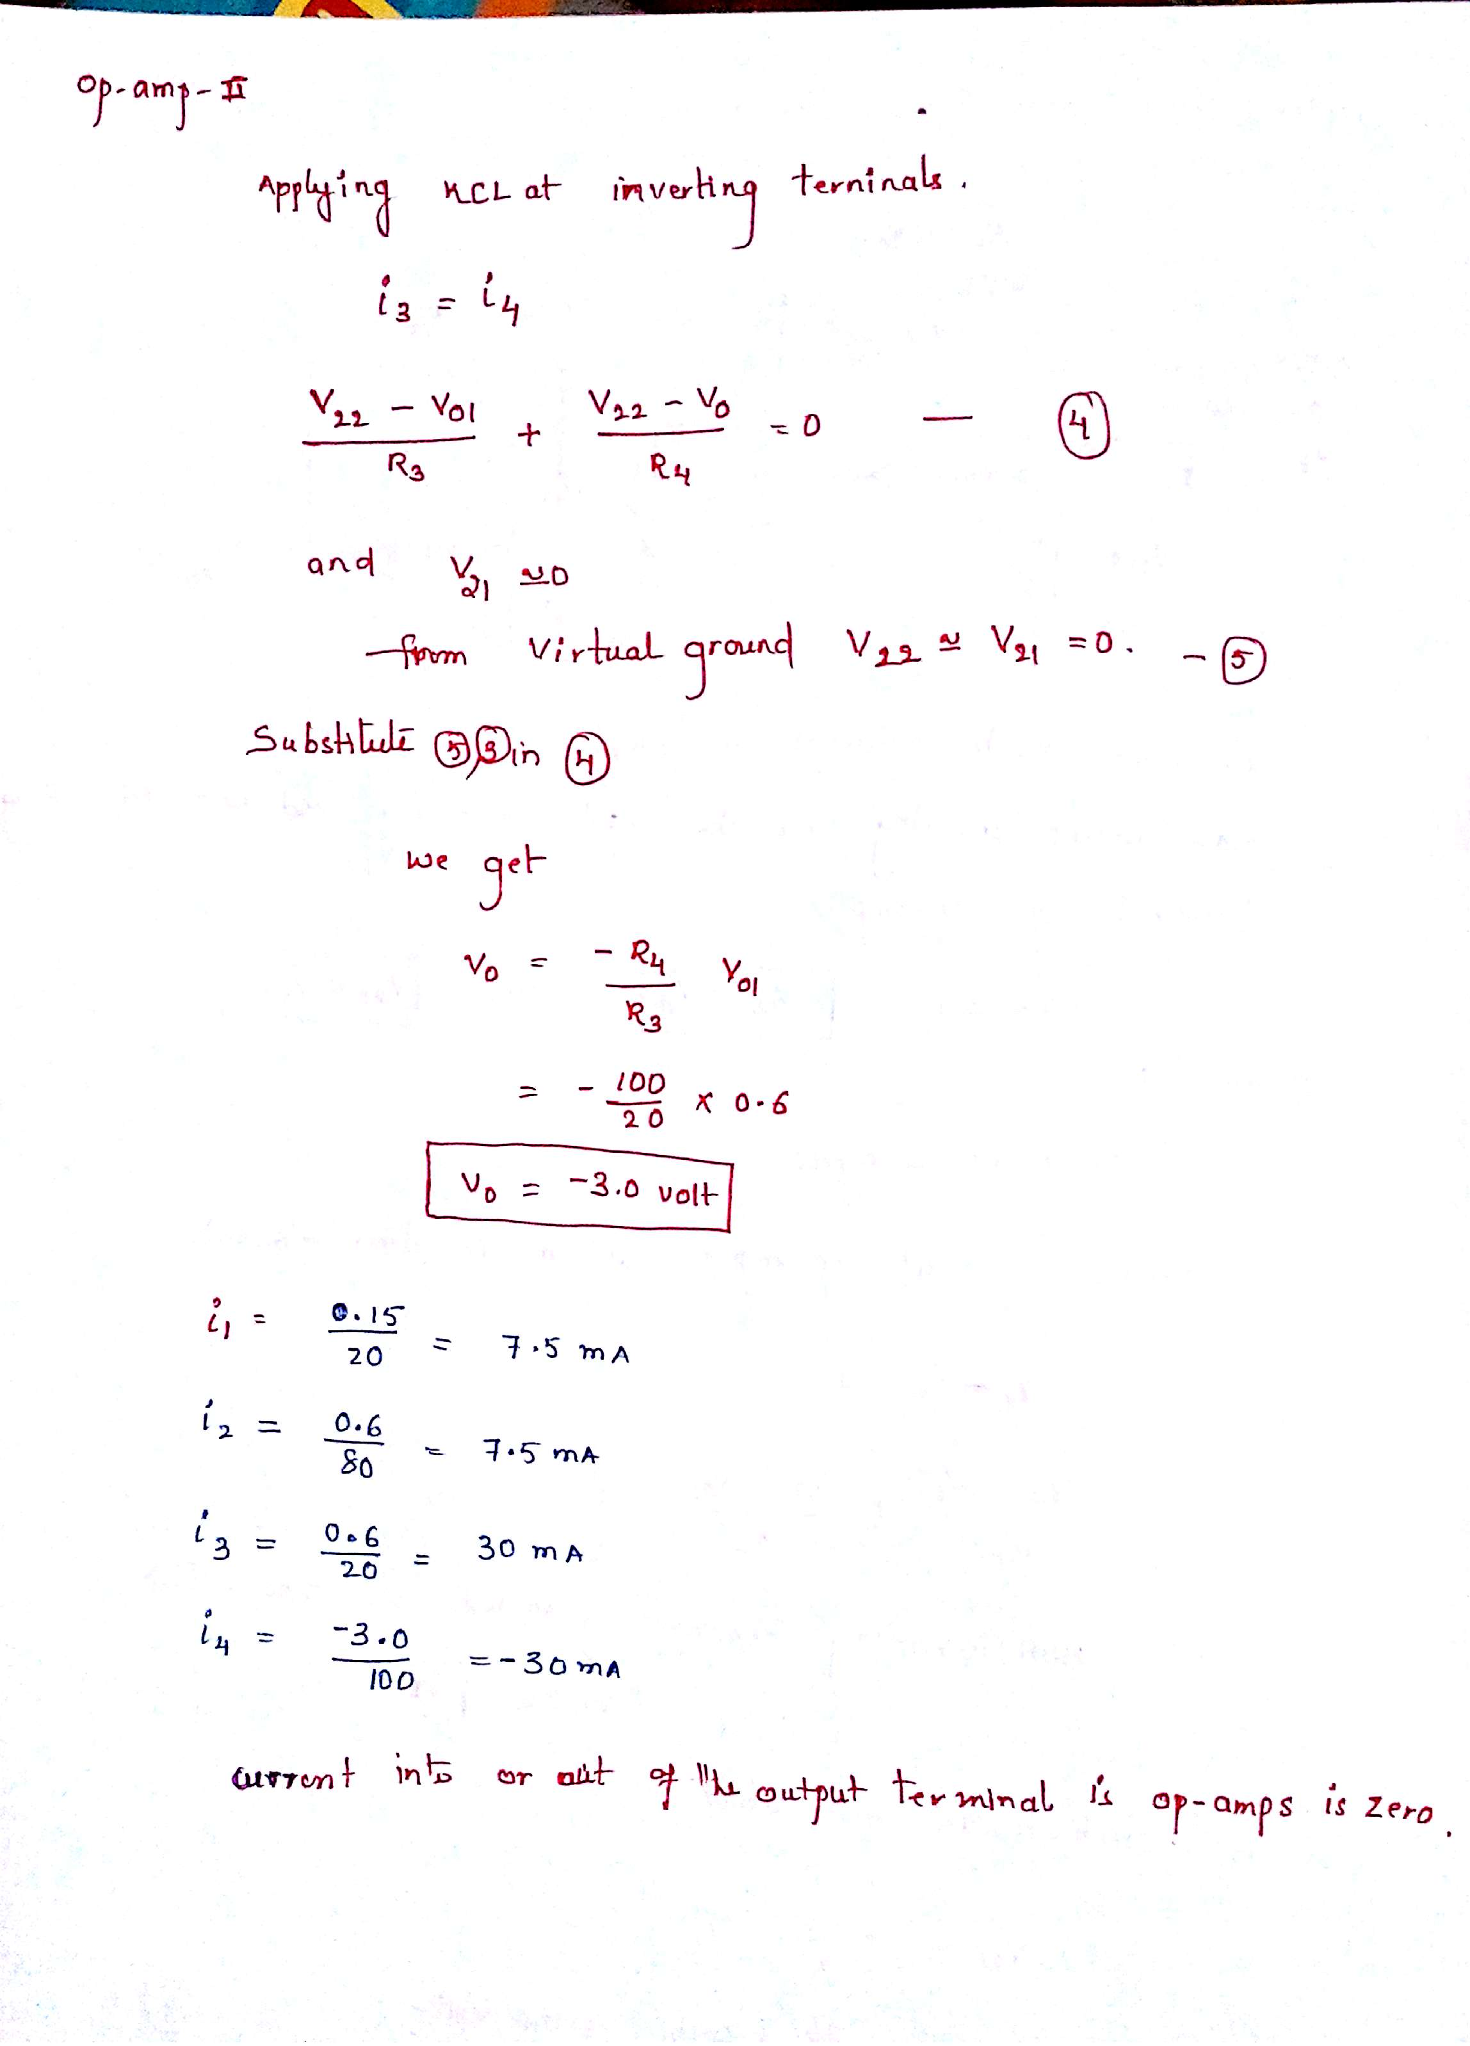 Op-amp-II
Applying KCL at inverting terninals.
i3 = i4
V22 - V01 / R3 + V22 - V0 / R4 = 0 — (4)
and V21 ≃ 0
from virtual ground V22 ≃ V21 = 0. - (5)
Substitute (5),(3) in (4)
we get
V0 = - R4 / R3 V01
= - 100 / 20 x 0.6
V0 = -3.0 volt
i1 = 0.15 / 20 = 7.5 mA
i2 = 0.6 / 80 = 7.5 mA
i3 = 0.6 / 20 = 30 mA
i4 = -3.0 / 100 = -30 mA
current into or out of the output terminal is op-amps is zero.